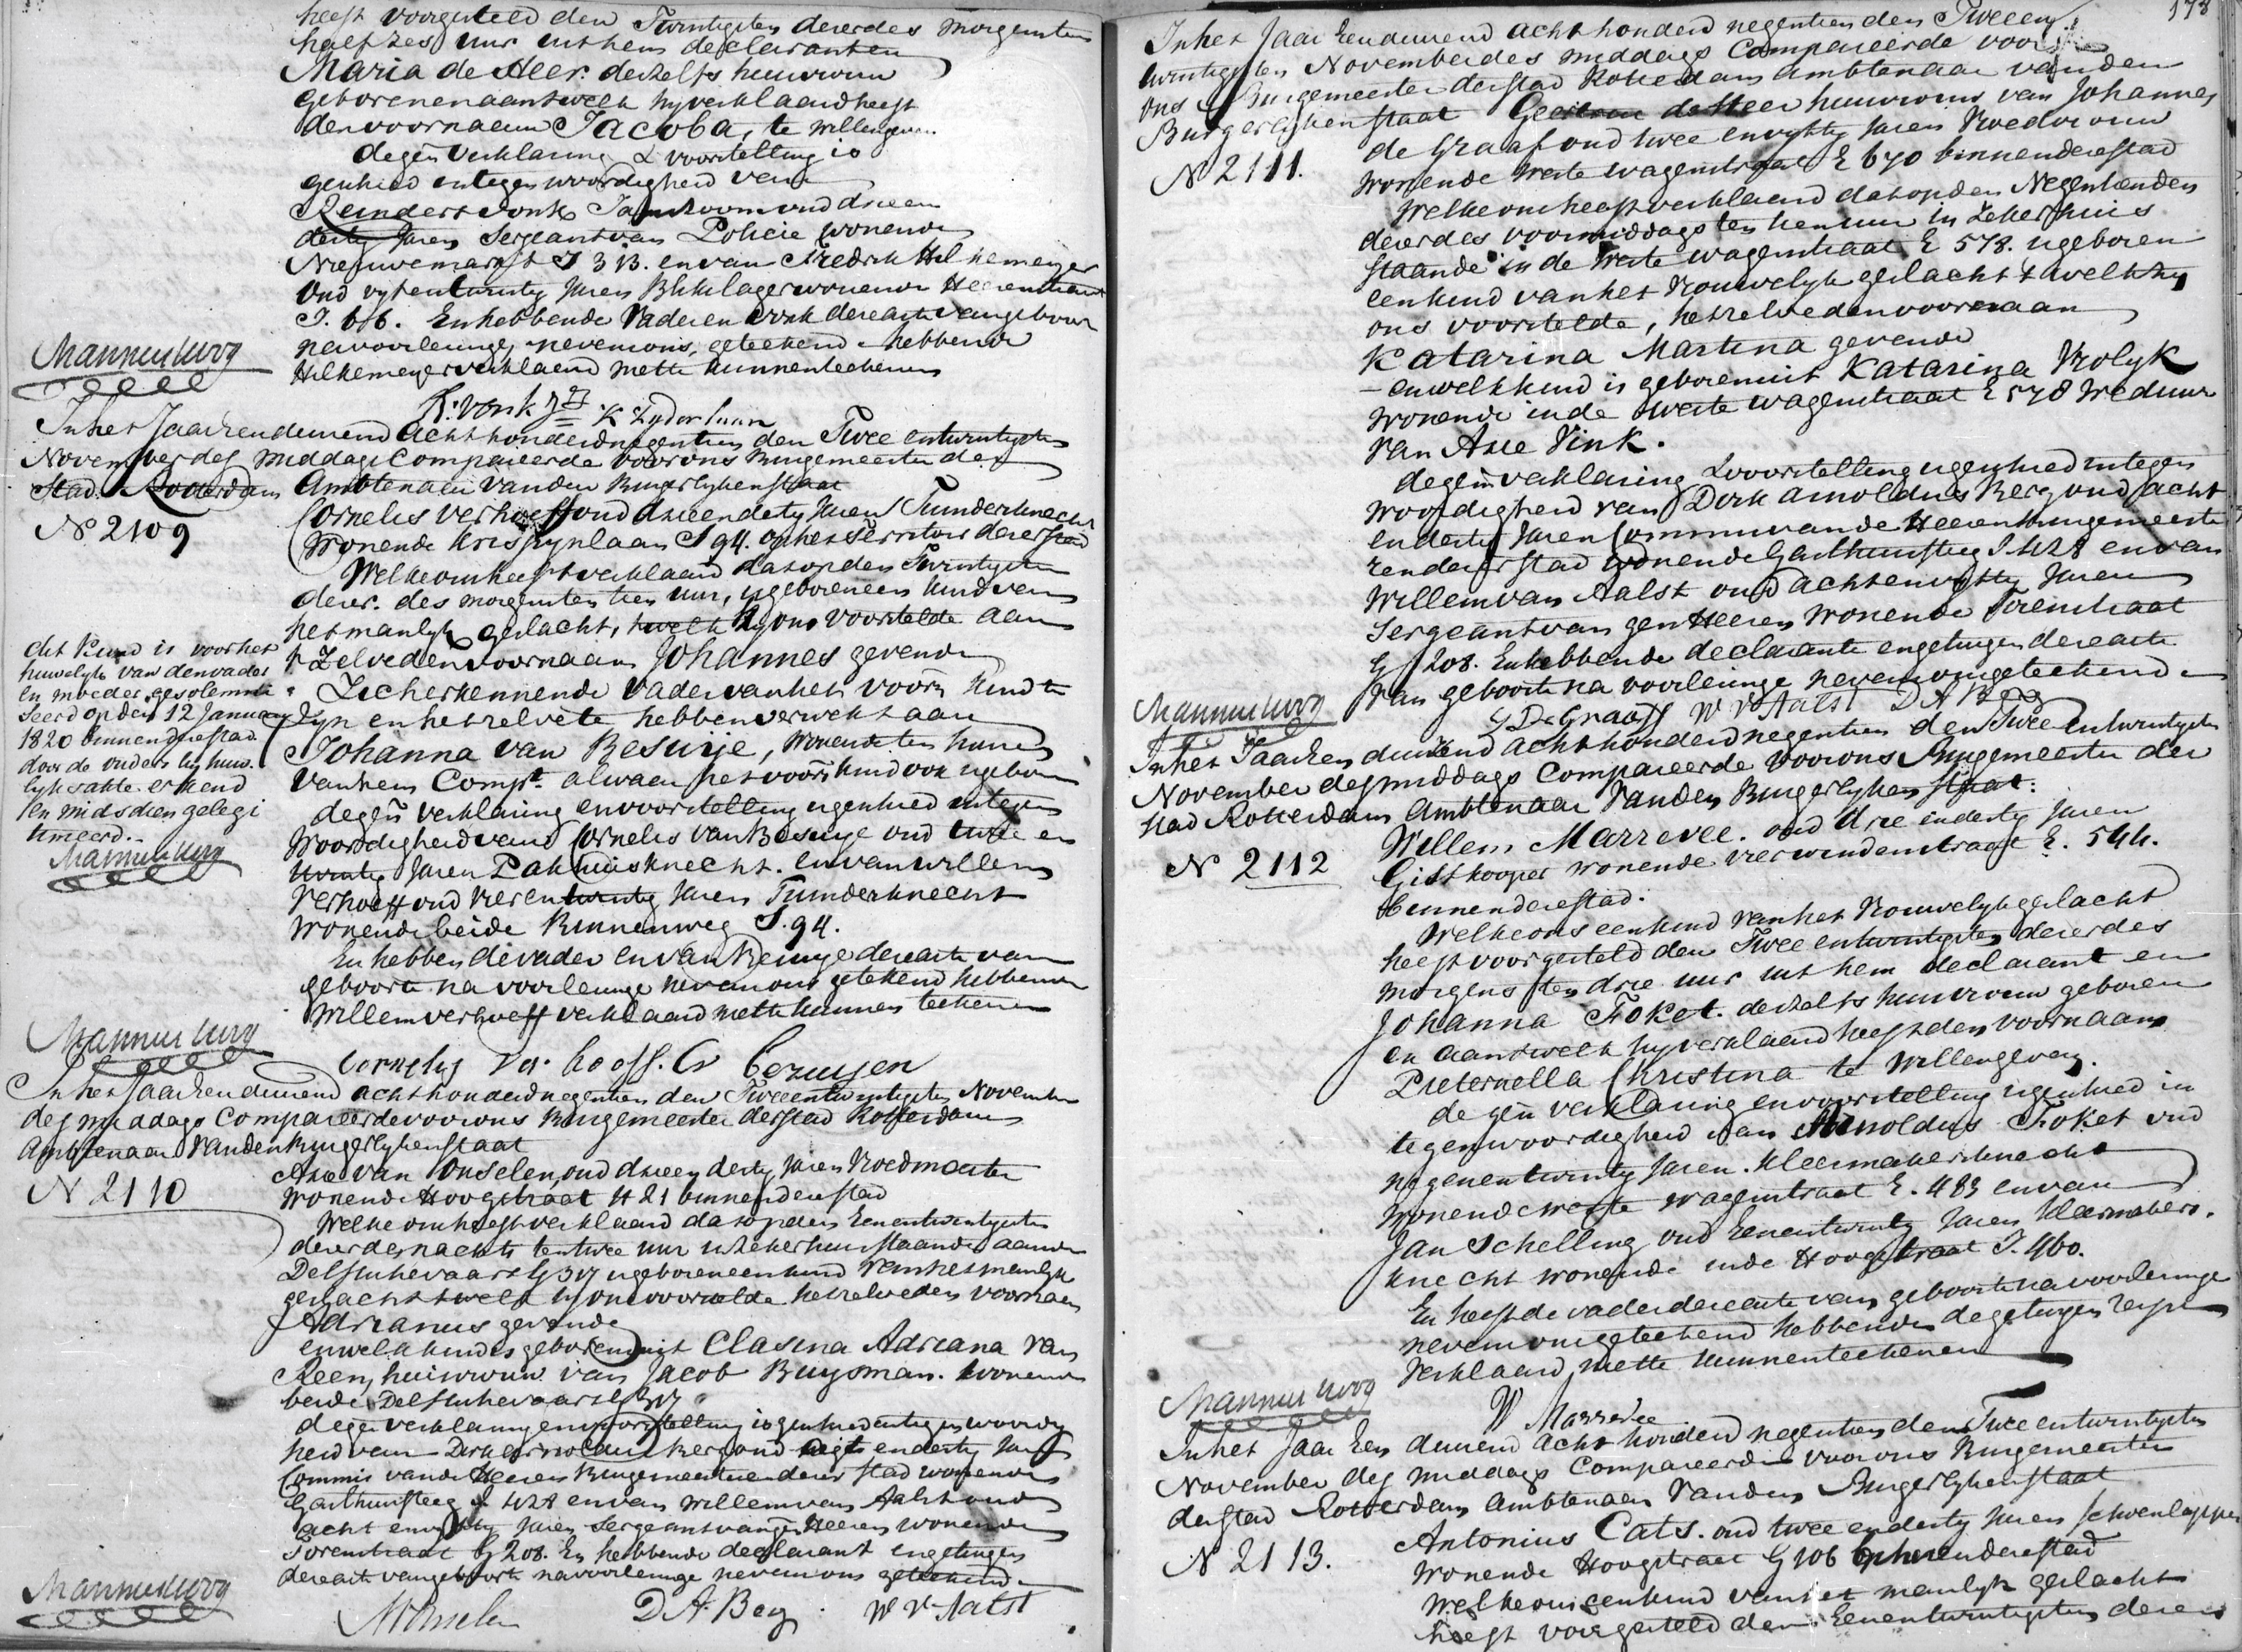 heeft voorgesteld den Twintigsten dezer des morgens ten
half zes uur uit hem declarant en
Maria de Heer deszelfs huisvrouw
geboren en aan twelk hy verklaard heeft
den voornaam Jacoba, te willen geven
degen verklaring & voorstelling is
geschied in tegenwoordigheid van
Reindert Vonk oud drieen
dertig Jaren Sergeant van Policie wonende
Nieuwemarkt I 313. en van Fredrik Hilkemeyer
oud vyfentwintig Jaren Blikslager wonende Heerenstraat
I. 66. En hebbende Vader en Vonk dezer acte van geboorte
na voorlezinge nevens ons, geteekend hebbende
Hilkemeyer verklaard niet te kunnen teekenen
Mannenburg
R: Vonk Jz K Zyderlaan
In het Jaar Eenduizend Achthonderd negentien den Twee entwintigsten
November des middags Compareerde voor ons Burgemeester der
Stad Rotterdam Ambtenaar van den Burgerlyken staat
No 2109
Cornelis Verhoeff oud drieendertig Jaren Tuindersknecht
Wonende Krispynlaan S 94. op het Territoir dezer stad
Welke ons heeft verklaard dat op den Twintigsten
dezer des morgens ten tien uur, is geboren een kind van
het manlyk geslacht, twelk hy ons voorstelde aan
't zelve den voornaam Johannes gevende
Zich erkennende Vader van het voorn kind te
zyn en hetzelve te hebben verwekt aan
Johanna van Besuije, wonende ten huize
van hem Compt. alwaar het voorn kind ook is geboren
degen verklaring en voorstelling is geschied in tegen
woordigheid van Cornelis van Besuije oud twee en
twintig Jaren Pakhuisknecht. en van Willem
Verhoeff oud vierentwintig Jaren Tuindersknecht
wonende beide Binnenweg S. 94.
En hebben de vader en van Besuije deze acte van
geboorte na voorlezinge nevens ons getekend hebbende
Willem Verhoeff verklaard niet te kunnen teekenen
dit kind is voor het
huwelyk van den vader
en moeder gesolemni
seerd op den 12 January
1820 binnen deze stad
door de ouders by huw.
lyks akte erkend
en midsdien gelegi
timeerd.
Mannenburg
Mannenburg
Cornelis Ver hoeff. C v Bezuijen
In het Jaar Eenduizend achthonderd negentien den Tweeentwintigsten November
des middags Compareerde voor ons Burgemeester der stad Rotterdam
Ambtenaar van den Burgerlyken staat
No 2110
Arie van Onselen, oud drieendertig Jaren Vroedmeester
wonende Hoogstraat H 21 binnen deze stad
Welke ons heeft verklaard dat op den Eenentwintigsten
dezer des nachts ten twee uur in zeker huis staande aan de
Delfschevaart G 317 is geboren een kind van het manlyk
geslacht twelk hy ons voorstelde hetzelve den voornaam
Adrianus gevende
en welk kind is geboren uit Clasina Adriana van
Reen, huisvrouw van Jacob Buysman. wonende
beide Delfschevaart G 317
degen verklaring en voorstelling is geschied in tegenwoordig
heid van Dirk Arnoldus Berg oud acht en dertig Jaren
Commis van de Heeren Burgemeesteren dezer stad wonende
Gasthuissteeg I 428 en van Willem van Aalst oud
acht en vyftig Jaren Sergeant van gen Heeren wonende
Torenstraat G 208. En hebbende declarant en getuigen
deze acte van geboorte na voorlezinge nevens ons geteekend.
Mannenburg
AvOnselen D A. Berg W V Aalst
178
In het Jaar Eenduizend achthonderd negentien den Tweeen
twintigsten November des middags Compareerde voor
ons Burgemeester der stad Rotterdam Ambtenaar van den
Burgerlyken staat Geertrui de Heer huisvrouw van Johannes
No 2111.
de Graaf oud twee en vyftig Jaren Vroedvrouw
wonende Weste wagenstraat E 670 binnen deze stad
Welke ons heeft verklaard dat op den Negentienden
dezer des voormiddags ten tien uur in zeker huis
staande in de Weste wagenstraat E 578. is geboren
een kind van het Vrouwelyk geslacht twelk zy
ons voorstelde, hetzelve den voornaam
Katarina Martina gevende
en welk kind is geboren uit Katarina Vrolyk
wonende in de Weste wagenstraat E 578 Weduwe
van Arie Vink.
degen verklaring & voorstelling is geschied in tegen
woordigheid van Dirk Arnoldus Berg oud acht
en dertig Jaren Commis van de Heeren Burgemeeste
ren dezer stad wonende Gasthuissteeg I 428 en van
Willem van Aalst oud achtenvyftig Jaren
Sergeant van gen Heeren wonende Torenstraat
G 208. En hebbende declarante en getuigen deze acte
van geboorte na voorlezinge nevens ons geteekend
Mannenburg
G De Graaff W V Aalst D A Berg
In het Jaar Een duizend achthonderd negentien den Twee entwintigsten
November des middags Compareerde voor ons Burgemeester der
stad Rotterdam Ambtenaar van den Burgerlyken staat.
No 2112
Willem Marrevee. oud drie en dertig Jaren
Gistkooper wonende Vierwindenstraat E. 544.
binnen deze stad.
Welke ons een kind van het Vrouwelyk geslacht
heeft voorgesteld den Twee entwintigsten dezer des
morgens ten drie uur uit hem declarant en
Johanna Foket. deszelfs huisvrouw geboren
en aan twelk hy verklaard heeft den voornaam
Pieternella Christina te willen geven.
de gen verklaring en voorstelling is geschied in
tegenwoordigheid van Arnoldus Foket oud
negenentwintig Jaren Kleermakersknecht
wonende Weste wagenstraat E. 483 en van
Jan Schelling oud Eenentwintig Jaren Kleermakers.
knecht wonende inde Hoogstraat I. 460.
En heeft de vader deze acte van geboorte na voorlezinge
nevens ons geteekend hebbende de getuigen
verklaard niet te kunnen teekenen
Mannenburg
W Marrevee
In het Jaar Een duizend acht honderd negentien den Twee entwintigsten
November des middags Compareerde voor ons Burgemeester
der stad Rotterdam Ambtenaar van den Burgerlyken staat
No 2113.
Antonius Cats. oud twee en dertig Jaren Schoenlapper
wonende Hoogstraat G 106 binnen deze stad
Welke ons een kind van het manlyk geslacht
heeft voorgesteld den Eenentwintigsten dezer